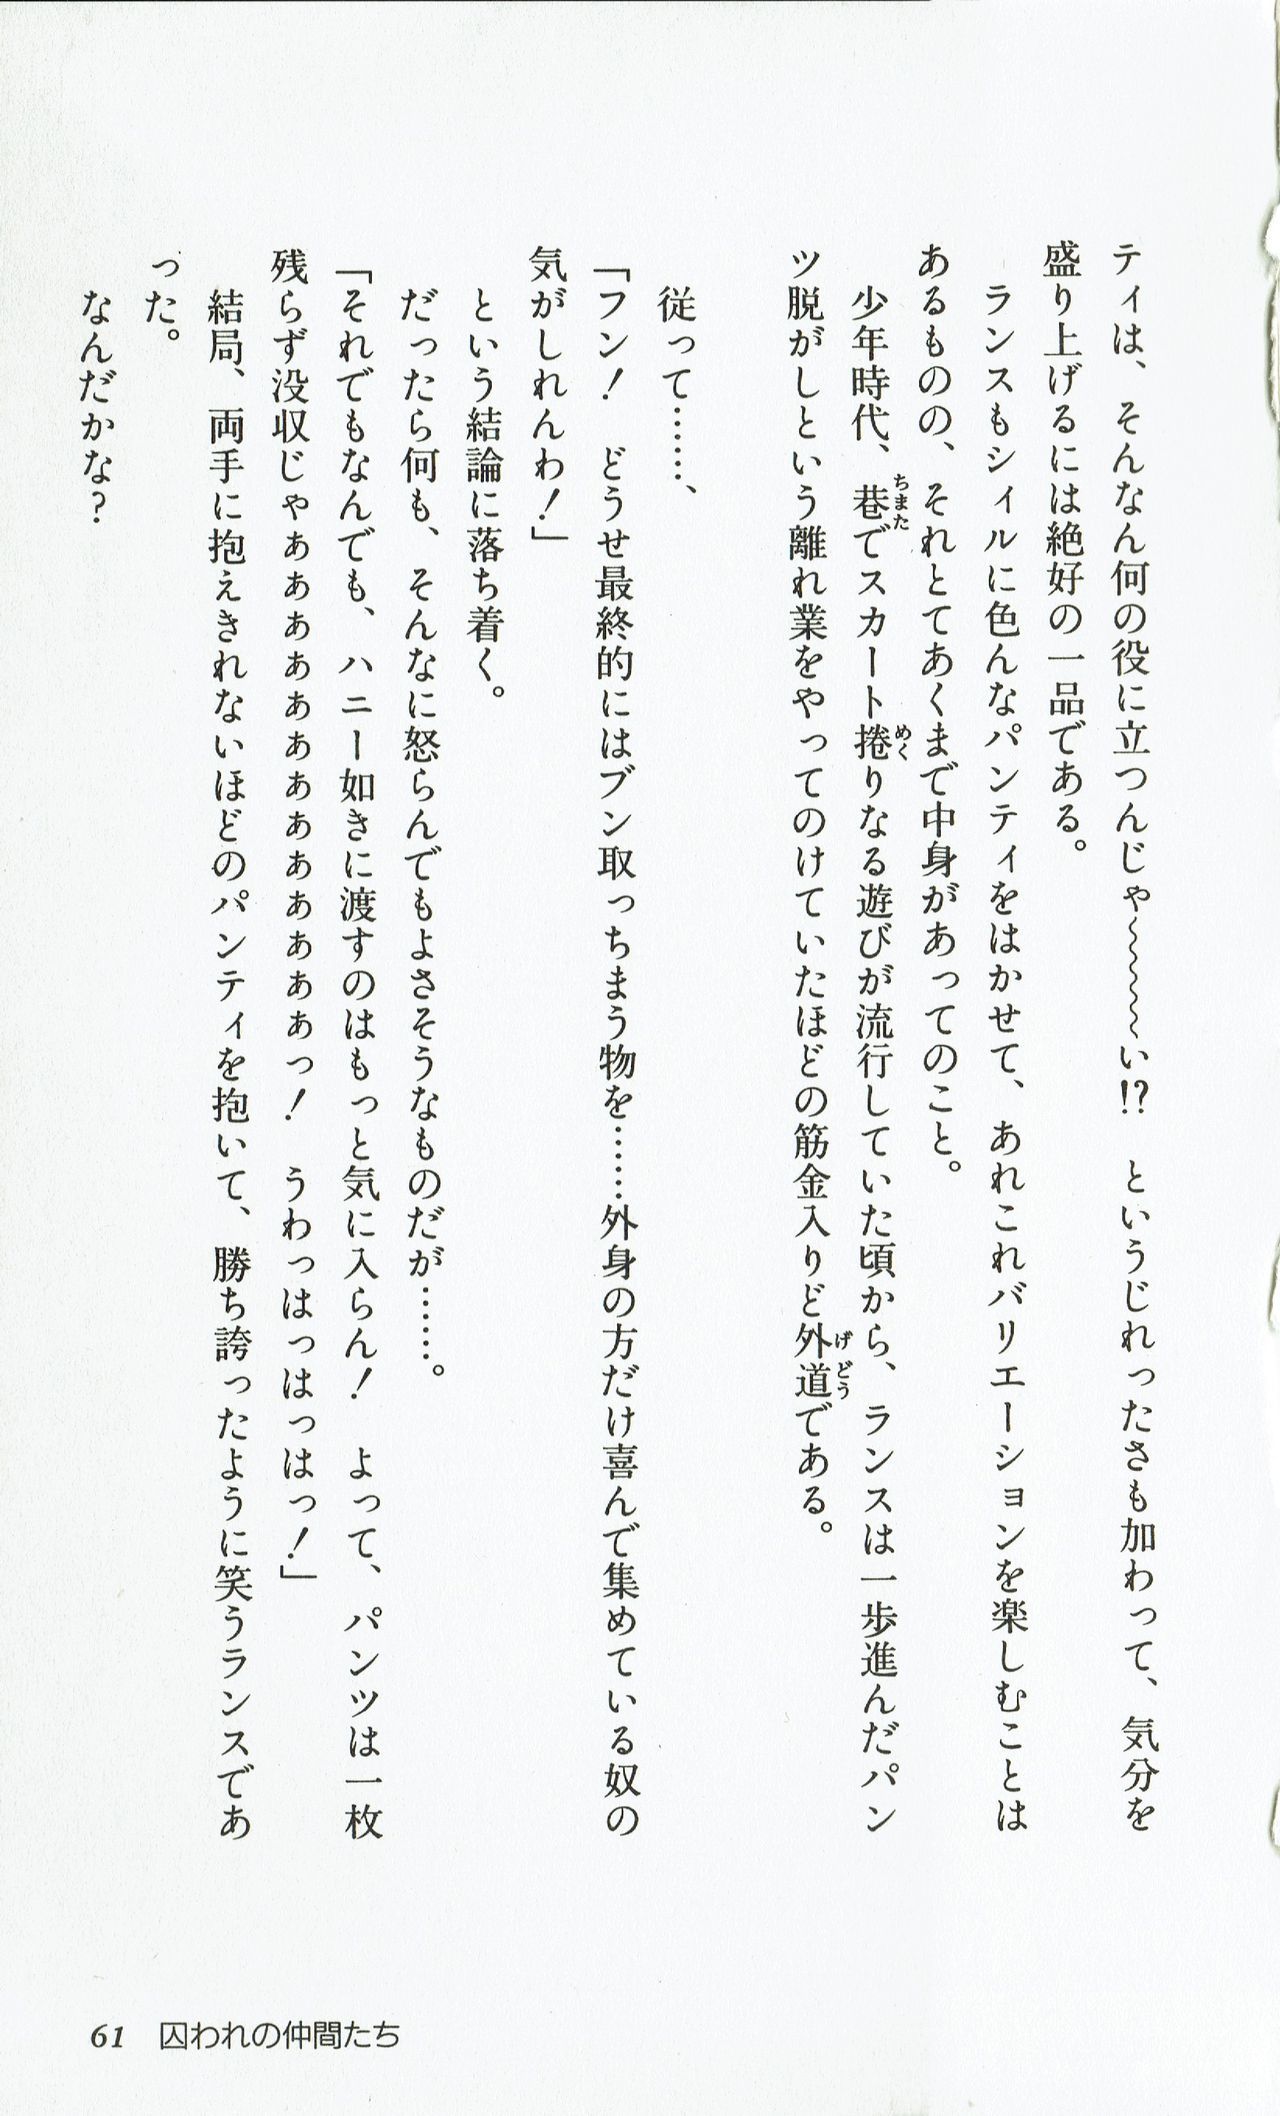 ティは、そんなん何の役に立つんじゃ～～～～い!?　というじれったさも加わって、気分を
盛り上げるには絶好の一品である。
　ランスもシィルに色んなパンティをはかせて、あれこれバリエーションを楽しむことは
あるものの、それとてあくまで中身があってのこと。
　少年時代、巷でスカート捲りなる遊びが流行していた頃から、ランスは一歩進んだパン
ちまた
めく
ツ脱がしという離れ業をやってのけていたほどの筋金入りど外道である。
げどう
　従って……、
「フン！　どうせ最終的にはブン取っちまう物を……外身の方だけ喜んで集めている奴の
気がしれんわ！」
　という結論に落ち着く。
　だったら何も、そんなに怒らんでもよさそうなものだが……。
「それでもなんでも、ハニー如きに渡すのはもっと気に入らん！　よって、パンツは一枚
残らず没収じゃぁぁぁぁぁぁぁぁぁぁぁぁぁっ！　うわっはっはっはっ！」
　結局、両手に抱えきれないほどのパンティを抱いて、勝ち誇ったように笑うランスであ
った。
　なんだかな？
61　囚われの仲間たち